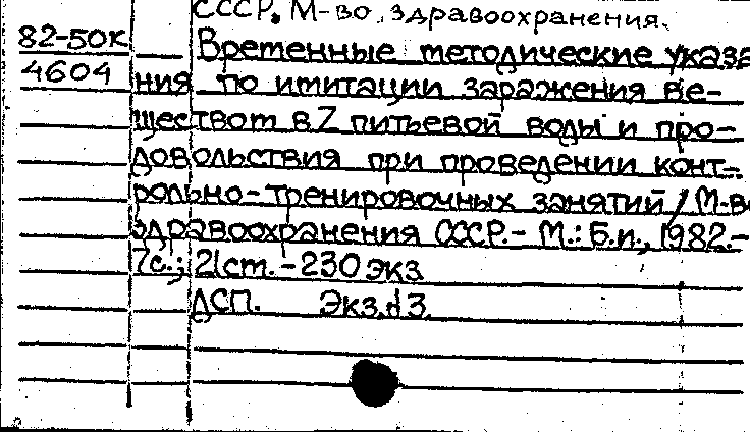 СССР. М-во здравоохранения.
82-50к Временные методические указа-
4604 ния по имитации заражения ве-
ществом В Z питьевой воды и про-
довольствия при проведении конт-
рольно-тренировочных занятий / М-во
здравоохранения СССР.- М.: Б.и., 1982.-
7с.; 21см. - 230 экз
ДСП. Экз. 13